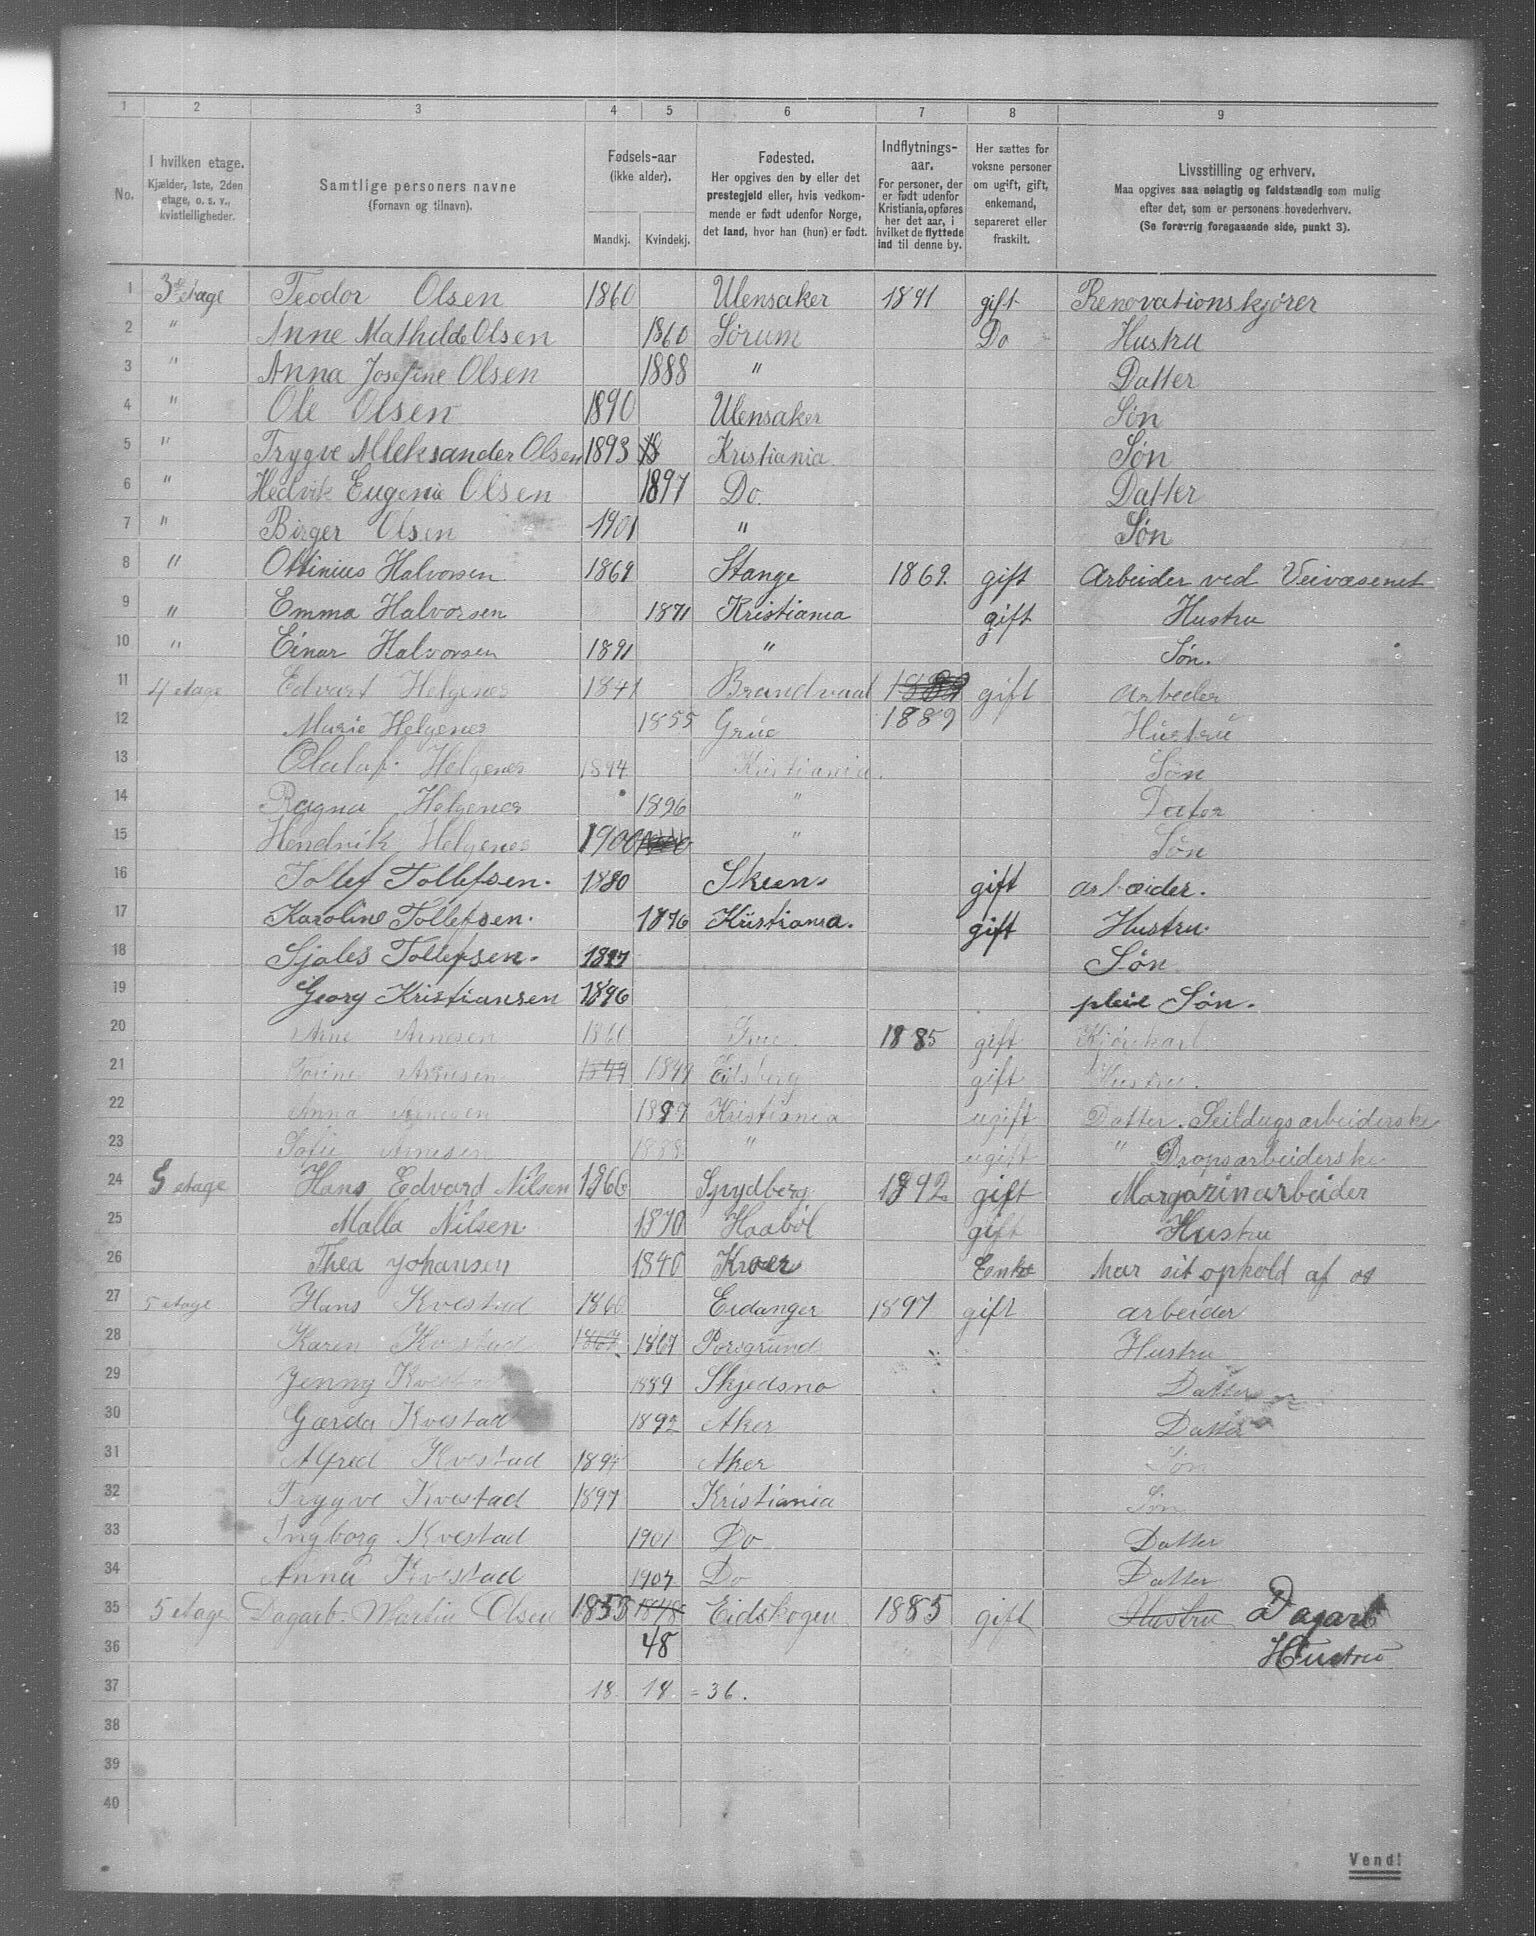 1 2 3 4 5 6 7 8 9
No.
I hvilken etage.
Kjælder, 1ste, 2den
etage, o. s. v.,
kvistleiligheder.
Samtlige personers navne
(Fornavn og tilnavn).
Fødsels-aar
(ikke alder).
Mandkj. Kvindekj.
Fødested.
Her opgives den by eller det
prestegjeld eller, hvis vedkom-
mende er født udenfor Norge,
det land, hvor han (hun) er født.
Indflytnings-
aar.
For personer, der
er født udenfor
Kristiania, opføres
her det aar, i
hvilket de flyttede
ind til denne by.
Her sættes for
voksne personer
om ugift, gift,
enkemand,
separeret eller
fraskilt.
Livsstilling og erhverv.
Maa opgives saa nøiagtig og fuldstændig som mulig
efter det, som er personens hovederhverv.
(Se forøvrig foregaaende side, punkt 3).
1 3die etage Teodor Olsen 1860 Ulensaker 1891 gift Renovationskjører
2 " Anne Mathilde Olsen 1860 Sørum Do Hustru
3 " Anna Josefine Olsen 1888 " Datter
4 " Ole Olsen 1890 Ulensaker Søn
5 " Trygve Alleksander Olsen 1893 18 Kristiania Søn
6 " Hedvik Eugenie Olsen 1897 Do. Datter
7 " Birger Olsen 1901 " Søn
8 " Ottinius Halvorsen 1869 Stange 1869. gift Arbeider ved Veivæsenet
9 " Emma Halvorsen 1871 Kristiania gift Hustru
10 " Einar Halvorsen 1891 " Søn.
11 4 etage Edvart Helgenes 1841 Brandvaal gift arbeder
12 Marie Helgenes 1855 Grue 1889 Hustru
13 Olalaf Helgenes 1894 Kristiania. Søn
14 Ragna Helgenes 1896 " Dater
15 Hendrik Helgenes 1900 " Søn
16 Tollef Tollefsen. 1880 Skien. gift arbeider.
17 Karoline Tollefsen. 1876 Kristiania. gift Hustru.
18 Sjales Tollefsen. 1897 Søn
19 Georg Kristiansen 1896 pleie Søn.
20 Arne Arnesen 1860 1885 gift Kjørekarl
21 Arnesen 1849 1849 Eidsberg gift Hustru.
22 Anna Arnesen 1887 Kristiania ugift Datter. Seildugsarbeiderske
23 Sofie Arnesen 1888 " ugift " Dropsarbeiderske
24 5 etage Hans Edvard Nilsen 1866 Spydberg 1892 gift Margazinarbeider
25 Malla Nilsen 1870 Haabøl gift Hustru
26 Thea Johansen 1840 Kroer Eenke har sit ophold af os
27 5 etage Hans Kvestad 1860 Eidanger 1897 gift arbeider
28 Karen Kvestad 1867 1867 Porsgrund " Hustru
29 Jenny Kvestad 1889 Skjedsmo Datter
30 Gærda Kvestad 1892 Aker Datter
31 Alfred Kvestad 1894 Aker Søn
32 Trygve Kvestad 1897 Kristiania Søn
33 Ingborg Kvestad 1901 Do Datter
34 Anna Kvestad 1904 Do Datter
35 5 etage Dagarb. Martin Olsen 1853 1848 Eidskogen 1885 gift Hustru Dagarb
36 48 Hustru
37 18. 18 = 36.
38
39
40
Vend!